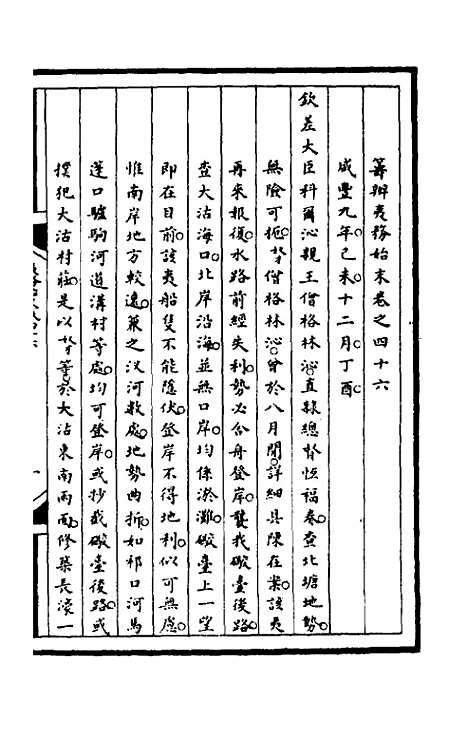 籌辦夷務始末卷之四十六
咸豐九年己未十二月丁酉
欽差大臣科爾沁親王僧格林沁直隸總督恆福奏查北塘地勢
無險可扼奴才僧格林沁曾於八月間詳細具陳在案該夷
再來報復水路前經失利勢必分舟登岸襲我礮臺後路
查大沽海口北岸沿海並無口岸均係淤灘礮臺上一望
即在目前該夷船隻不能隱伏登岸不得地利似可無慮
惟南岸地方較遠兼之汊河數處地勢曲折如祁口河馬
蓬口驢駒河道溝村等處均可登岸或抄截礮臺後路或
撲犯大沽村莊是以奴才等於大沽東南兩面修築長濠一